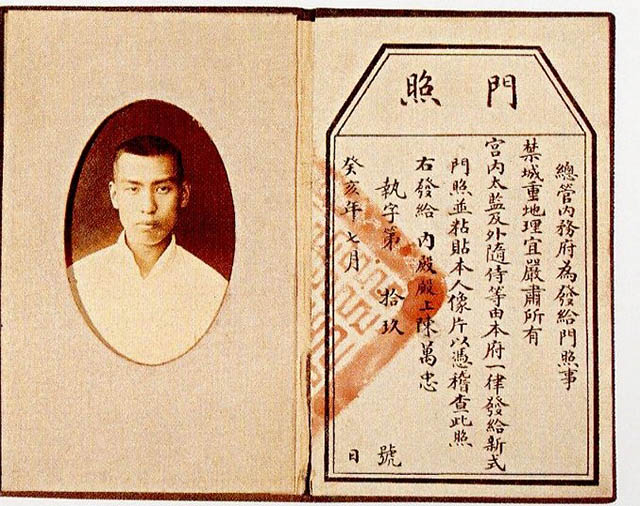 門照
總管內務府為發給門照事
禁城重地理宜嚴肅所有
宮內太監及外隨侍等由本府一律發給新式
門照並粘貼本人像片以憑稽查此照
右發給內殿殿上陳萬忠
執字第拾玖號
癸亥年七月日